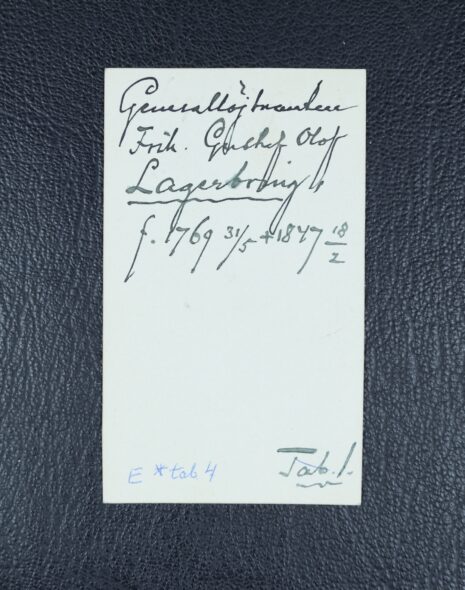 Generallöjtnanten
Frih. Gustaf Olof
Lagerbring
f. 1769 31/5 + 1847 18/2
E * tab 4
Tab. 1.